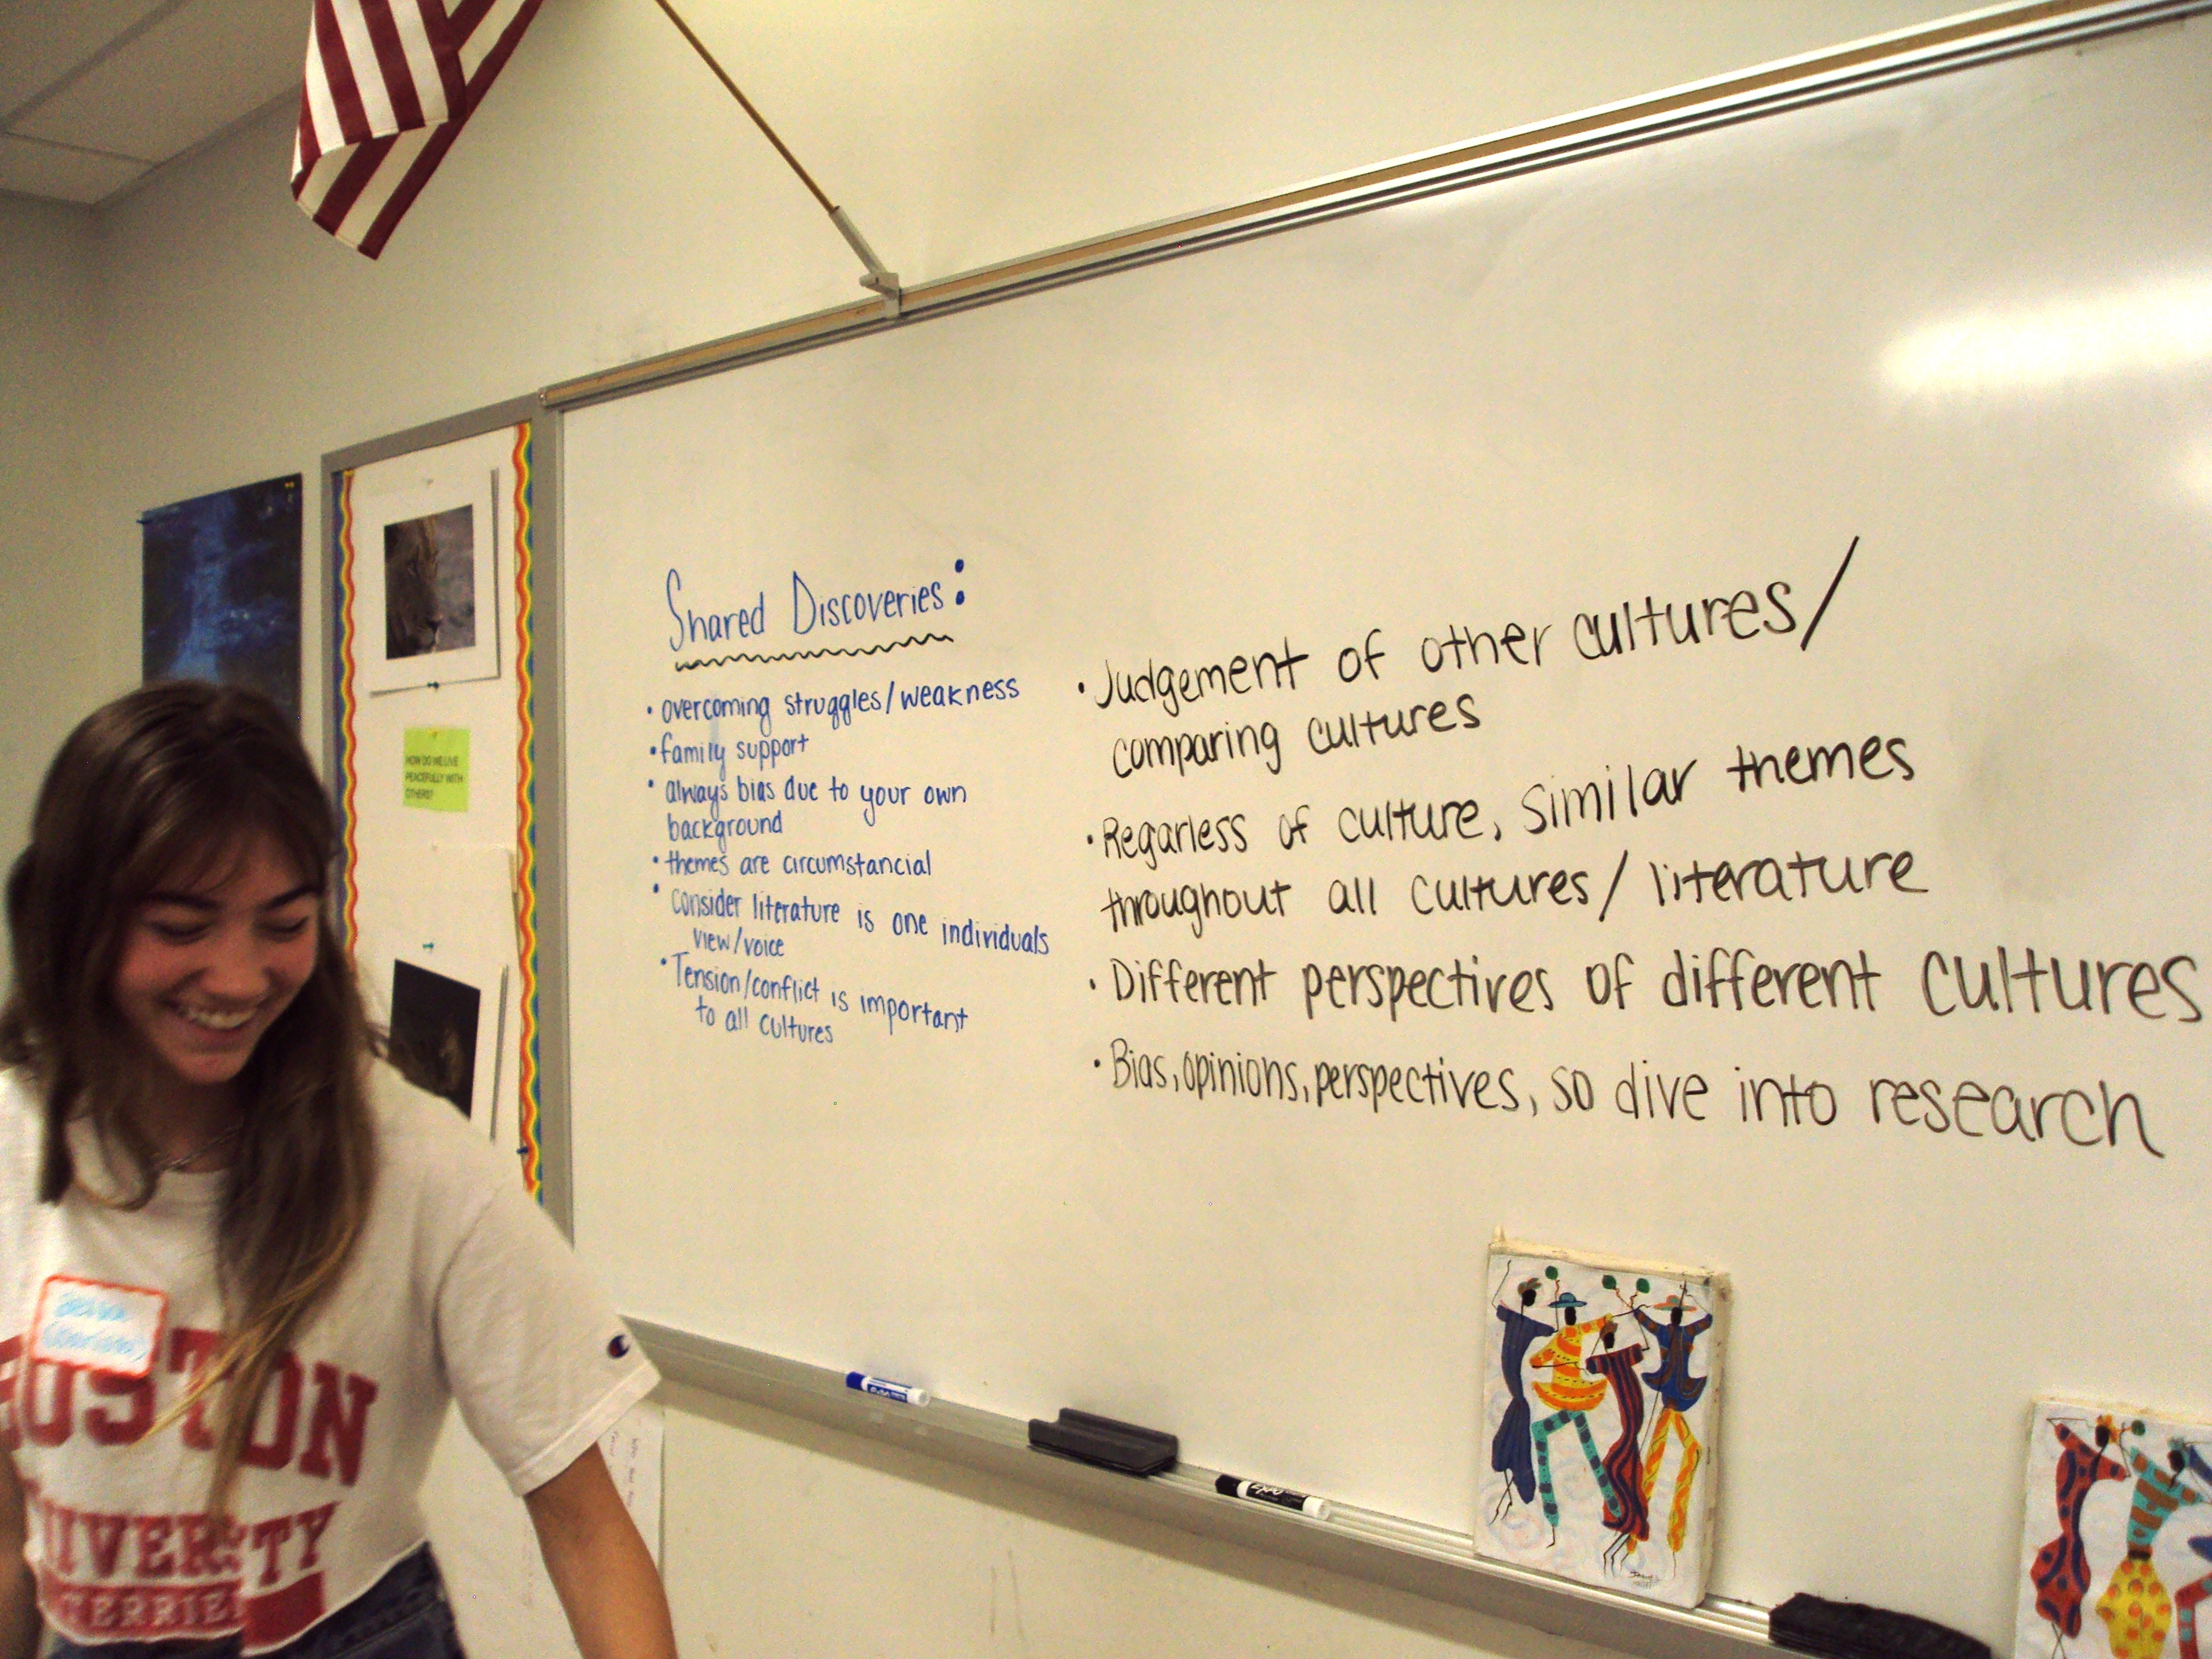 Shared Discoveries:
• overcoming struggles/weakness
• family support
• always bias due to your own
background
• themes are circumstancial
• consider literature is one individuals
view/voice
• Tension/conflict is important
to all cultures
• Judgement of other cultures/
comparing cultures
• Regarless of culture, similar themes
throughout all cultures/literature
• Different perspectives of different cultures
• Bias, opinions, perspectives, so dive into research
HOW DO WE LIVE
PEACEFULLY WITH
OTHERS?
BOSTON
UNIVERSITY
TERRIE
EXPO